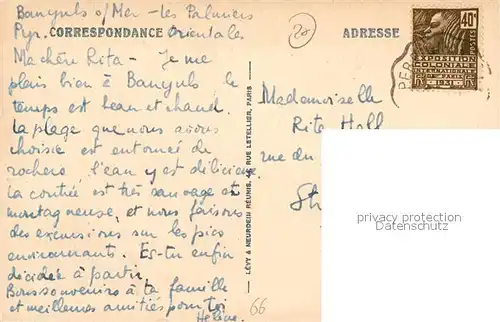 Banyuls s/Mer - Les Palmiers
Pyr. Orientales
CORRESPONDANCE
ADRESSE
Ma chère Rita - Je me
plais bien à Banyuls, le
temps est beau et chaud.
La plage que nous avons
choisie est entourée de
rochers, l'eau y est délicieuse
La contrée est très sauvage et
montagneuse, et nous faisons
des excursions sur les pics
environnants. Es-tu enfin
décidée à partir,
Bons souvenirs à ta famille
et meilleures amitiés pour toi
Hélène.
LÉVY & NEURDEIN RÉUNIS, 44, RUE LETELLIER, PARIS
Mademoiselle
Rita
rue du
St
40c
POSTES
EXPOSITION
COLONIALE
INTERNATIONALE
PARIS
1931
PER
66
privacy protection
Datenschutz